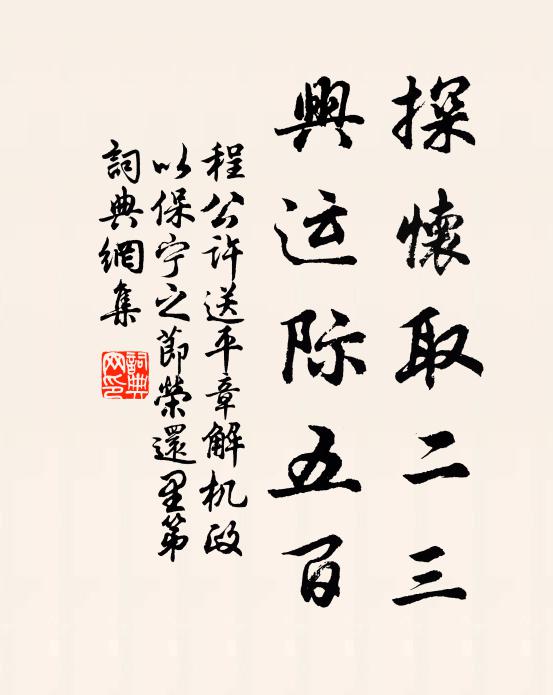 探懷取二三
興运际五百
程公许送平章解机政
以保宁之節榮還里第
詞典網集
詞典
网印